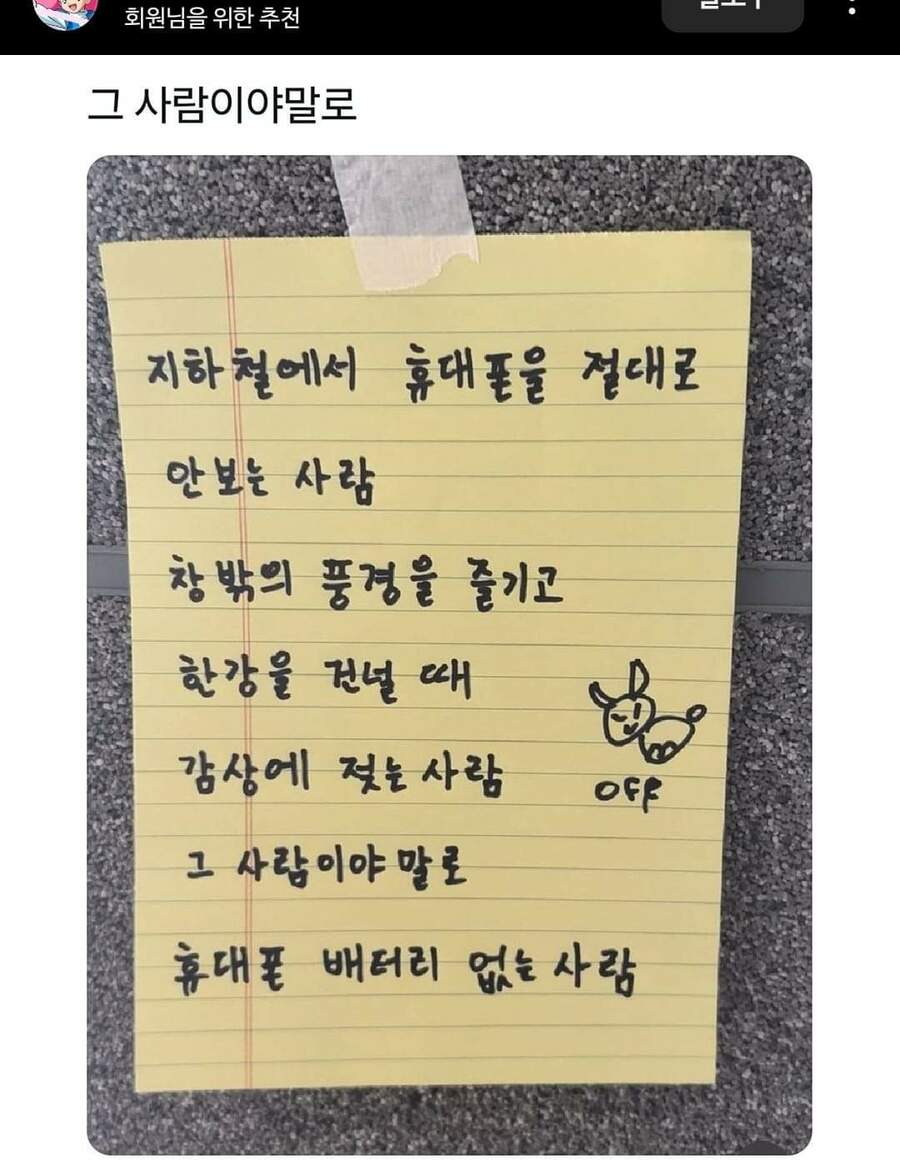 회원님을 위한 추천
그 사람이야말로
지하철에서 휴대폰을 절대로
안보는 사람
창밖의 풍경을 즐기고
한강을 건널 때
감상에 젖는 사람
OFF
그 사람이야말로
휴대폰 배터리 없는 사람